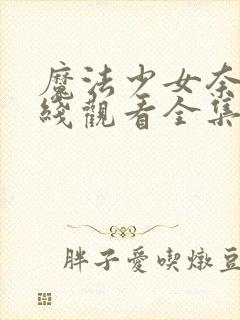 魔法少女奈
綫觀看全集
胖子愛喫燉豆